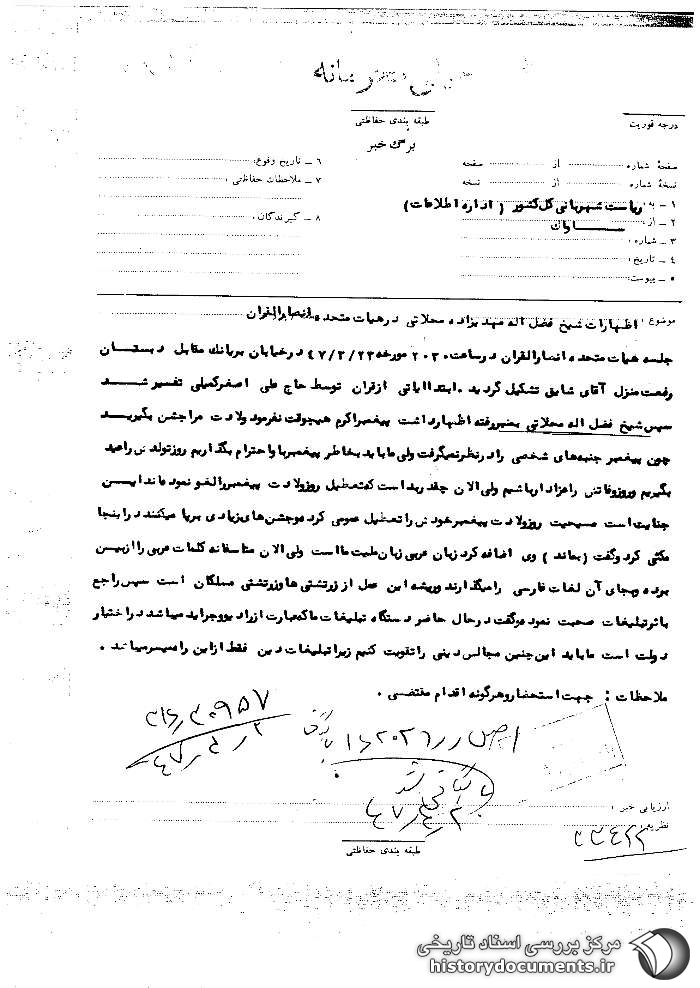 خیلی محرمانه
طبقه بندی حفاظتی
درجه فوریت
برگ خبر
صفحه شماره از صفحه
۶ ـ تاریخ وقوع:
نسخه شماره از نسخه
۷ ـ ملاحظات حفاظتی:
۱ ـ به: ریاست شهربانی کل کشور (اداره اطلاعات)
۲ ـ از: ساواک
۸ ـ گیرندگان:
۳ ـ شماره:
۴ ـ تاریخ:
۵ ـ پیوست:
موضوع: اظهارات شیخ فضل اله مهدیزاده محلاتی در هیات متحده انصارالقران
جلسه هیات متحده انصارالقران در ساعت ۲۰۳۰ مورخه ۴۷/۳/۲۳ در خیابان بربانک مقابل دبستان
رفعت منزل آقای شایق تشکیل گردید. ابتدا ایاتی از قران توسط حاج علی اصغر کمیلی تفسیر شد
سپس شیخ فضل اله محلاتی بمنبر رفته اظهار داشت پیغمبر اکرم هیچوقت نفرمود ولادت مرا جشن بگیرید
چون پیغمبر جنبه‌های شخصی را در نظر نمیگرفت ولی ما باید بخاطر پیغمبر با و احترام بگذاریم روز تولدش را عید
بگیریم و روز وفاتش را عزادار باشیم ولی الان چقدر بد است که تعطیل روز ولادت پیغمبر را لغو نموده‌اند این
جنایت است مسیحیت روز ولادت پیغمبر خودش را تعطیل عمومی کرده و جشن‌های زیادی برپا میکنند در اینجا
مکثی کرد و گفت (بماند) وی اضافه کرد زبان عربی زبان ملیت ما است ولی الان متاسفانه کلمات عربی را از بین
برده و بجای آن لغات فارسی را میگذارند و ریشه این عمل از زرتشتی‌ها و زرتشتی مسلکان است سپس راجع
باثر تبلیغات صحبت نموده و گفت در حال حاضر دستگاه تبلیغات ما که عبارت از رادیو و جراید میباشد در اختیار
دولت است ما باید این چنین مجالس دینی را تقویت کنیم زیرا تبلیغات دین فقط از این راه میسر میباشد.
ملاحظات: جهت استحضار و هرگونه اقدام مقتضی.
۳۰۹۵۷
بایگانی شد
ارزیابی خبر:
نظریه:
۲۳۴۲۲
طبقه بندی حفاظتی
مرکز بررسی اسناد تاریخی
historydocuments.ir